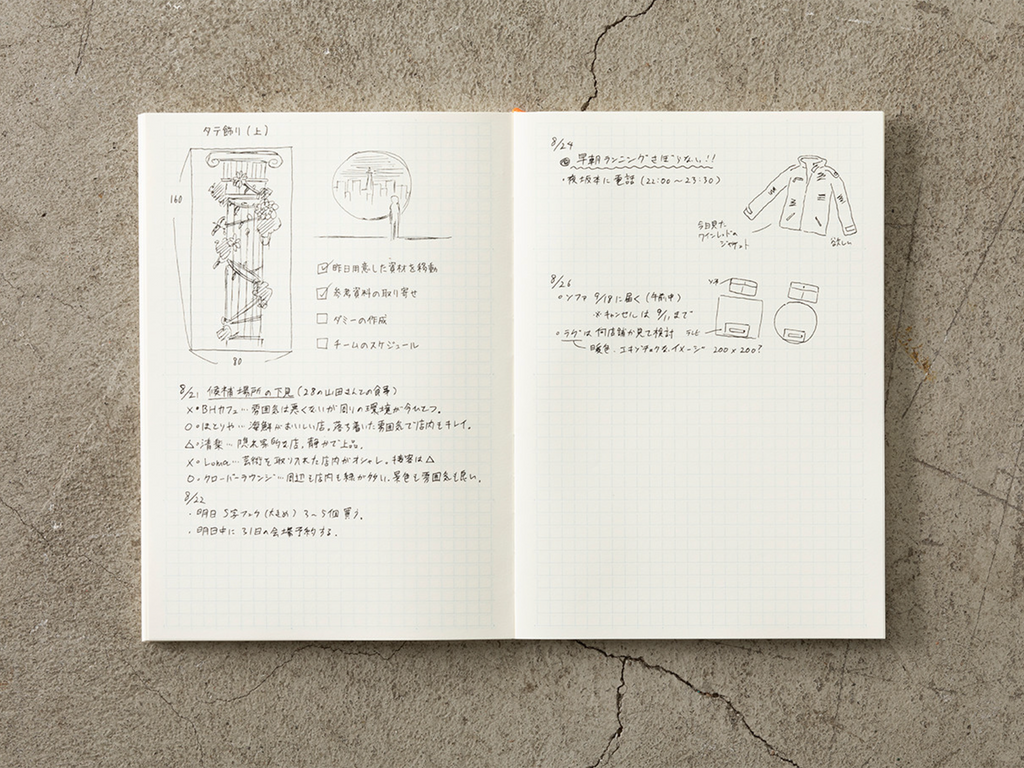 タテ飾り(上)
160
80
昨日用意した資材を移動
参考資料の取り寄せ
ダミーの作成
チームのスケジュール
8/21 候補場所の下見(28の山田さんとの食事)
×・BHカフェ…雰囲気は悪くないが周りの環境が今ひとつ。
○・ほとりや…海鮮がおいしい店。落ち着いた雰囲気で店内もキレイ。
△・清楽…隠れ家的な店。静かで上品。
×・Luna…芸術を取り入れた店内がオシャレ。接客は△
○・クローバーラウンジ…周辺も店内も緑が多い、景色も雰囲気も良い。
8/22
・明日 S字フック(大きめ) 3〜5個買う。
・明日中に31日の会場予約する。
8/24
早朝ランニングさぼらない!!
・夜坂本に電話(22:00〜23:30)
今日見た
ワインレッドの
ジャケット
欲しい
8/26
○ソファ 9/18に届く(午前中)
※キャンセルは 9/11まで
○ラグは何店舗か見て検討
暖色.エキゾチックなイメージ 200×200?
ソファ
テレビ